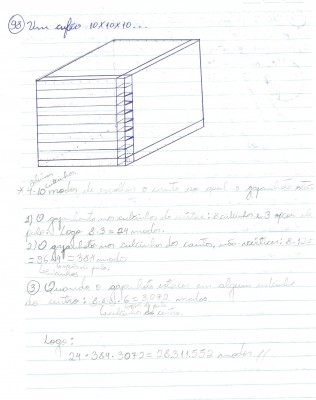 93 Um cubo 10X10X10...
* 4-10 modos de escolher o canto no qual o gafanhoto está
1) O gafanhoto nos cubinhos de vértice: 8 cubinhos e 3 opções de
pulo. Logo 8·3 = 24 modos.
2) O gafanhoto nos cubinhos dos cantos, não vértices: 8·12
= 96·4 = 384 modos
3 Quando o gafanhoto estiver em algum cubinho
do centro: 8·8·8·6 = 3072 modos.
Logo:
24 · 384 · 3072 = 28311.552 modos //